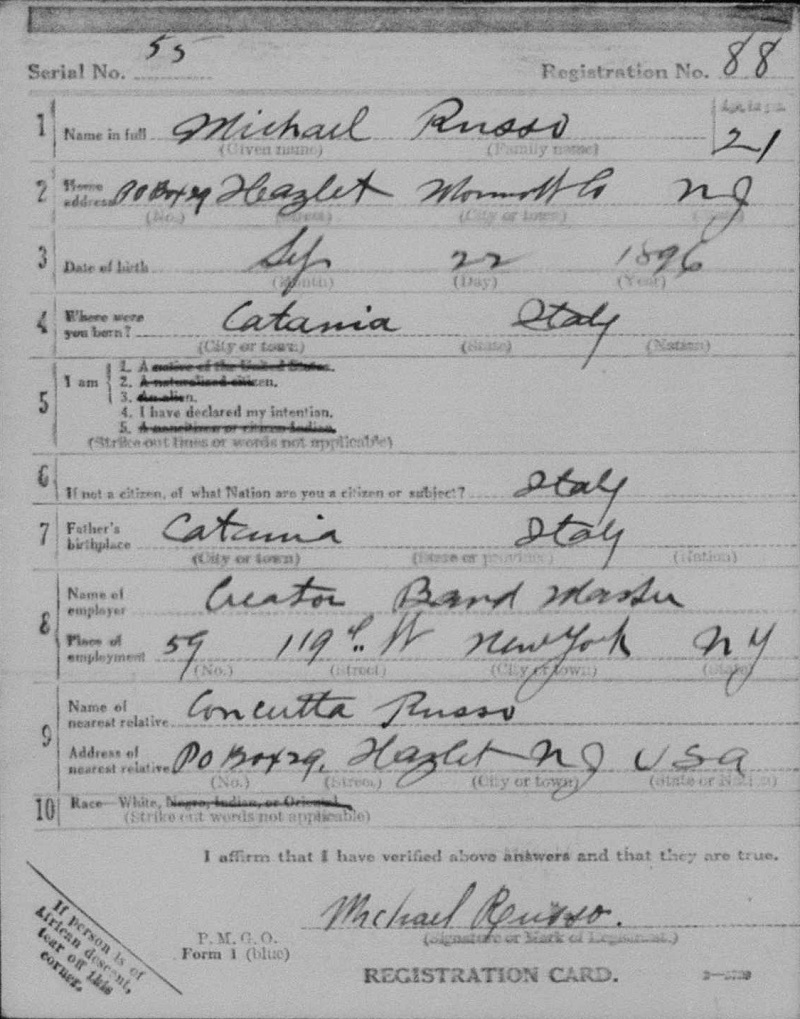 Serial No. 55 Registration No. 88
1 Name in full Michael Russo 21
(Given name) (Family name)
2 Home address PO Box 29 Hazlet Monmoth Co NJ
(No.) (Street) (City or town) (State)
3 Date of birth Sep 22 1896
(Month) (Day) (Year)
4 Where were you born? Catania Italy
(City or town) (State) (Nation)
5 I am
1. A native of the United States.
2. A naturalized citizen.
3. An alien.
4. I have declared my intention.
5. A noncitizen or citizen Indian.
(Strike out lines or words not applicable)
6 If not a citizen, of what Nation are you a citizen or subject? Italy
7 Father's birthplace Catania Italy
(City or town) (State or province) (Nation)
8 Name of employer Creator Band Master
Place of employment 59 119th W New York NY
(No.) (Street) (City or town) (State)
9 Name of nearest relative Concetta Russo
Address of nearest relative PO Box 29, Hazlet NJ USA
(No.) (Street) (City or town) (State or Nation)
10 Race—White, Negro, Indian, or Oriental
(Strike out words not applicable)
I affirm that I have verified above answers and that they are true.
Michael Russo.
P. M. G. O. (Signature or Mark of Registrant.)
Form 1 (blue)
REGISTRATION CARD.
If person is of
African descent,
tear off this
corner.